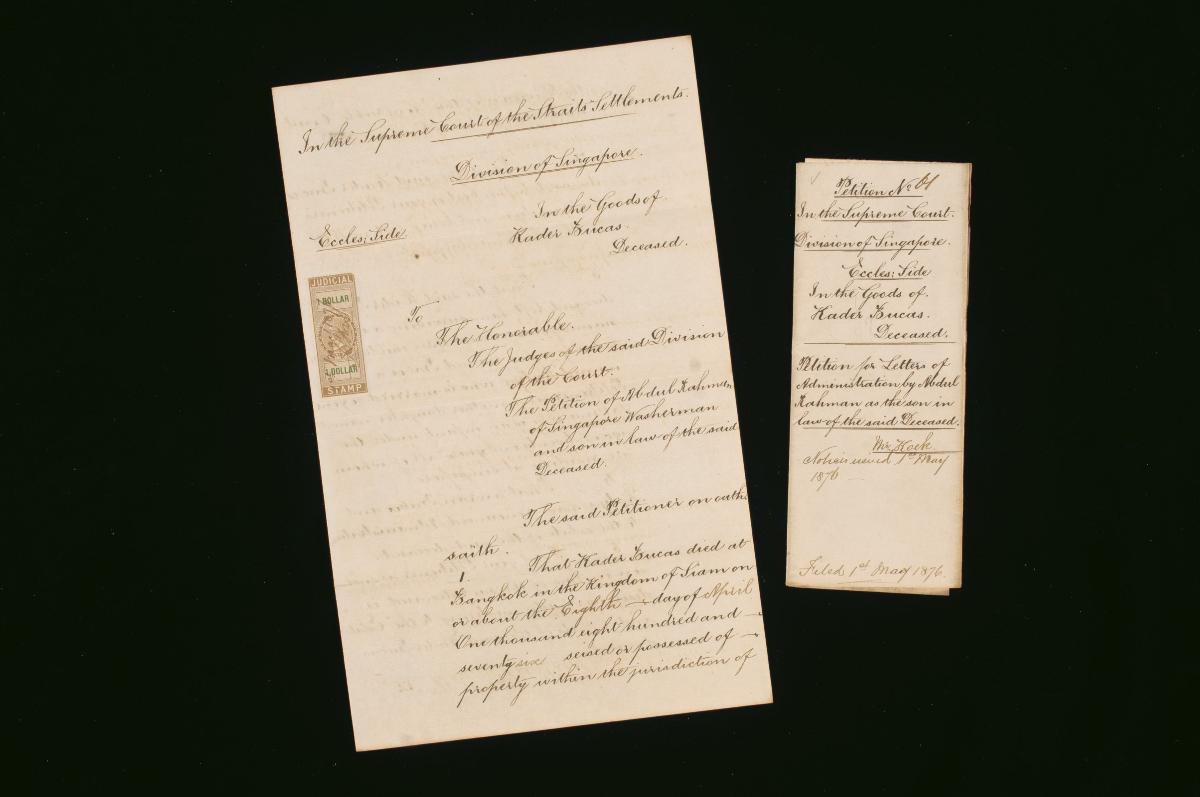 In the Supreme Court of the Straits Settlements.
Division of Singapore.
In the Goods of
Eccles: Side
Kader Bucas.
Deceased.
JUDICIAL
1 DOLLAR
1 DOLLAR
STAMP
To
The Honorable.
The Judges of the said Division
of the Court.
The Petition of Abdul Rahman
of Singapore Washerman
and son in law of the said
Deceased.
The said Petitioner on oath
saith.
1
That Kader Bucas died at
Bangkok in the Kingdom of Siam on
or about the Eighth — day of April
One thousand eight hundred and —
seventy six seised or possessed of —
property within the jurisdiction of
Petition No
In the Supreme Court.
Division of Singapore.
Eccles: Side
In the Goods of.
Kader Bucas.
Deceased.
Petition for Letters of
Administration by Abdul
Rahman as the son in
law of the said Deceased.
Mr Kock
Notice issued 1st May
1876 —
Filed 1st May 1876.